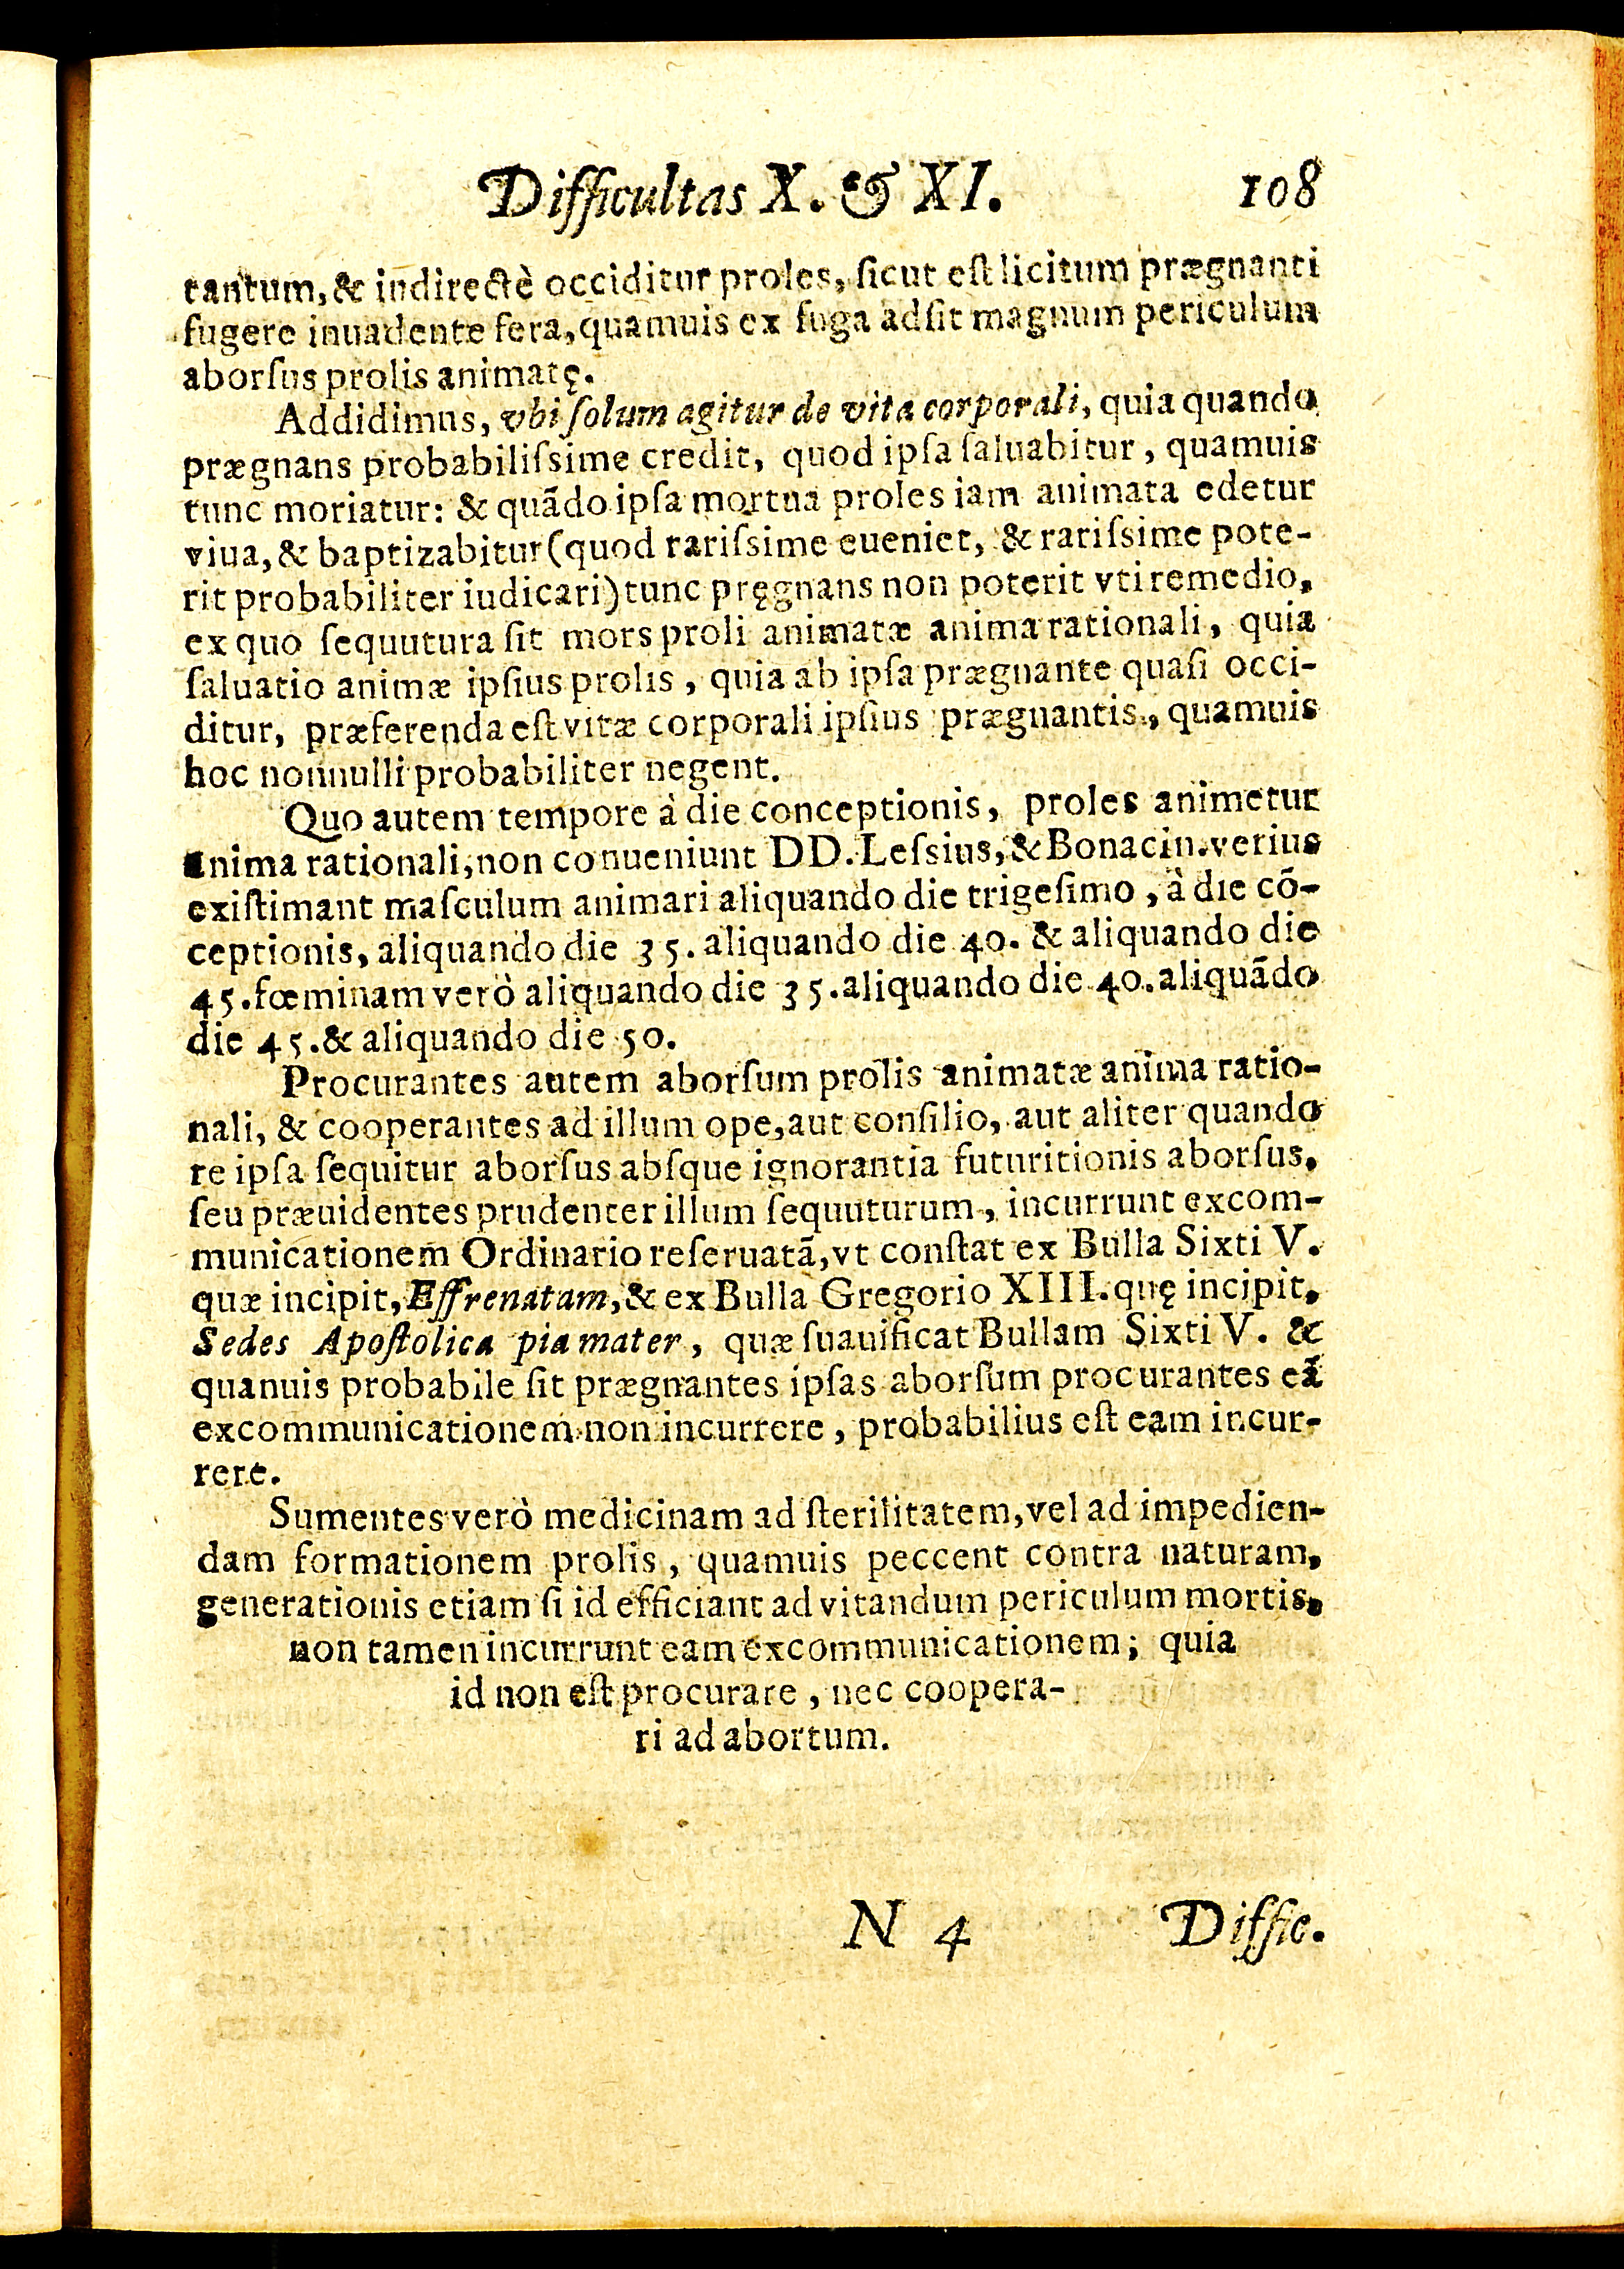 Difficultas X. & XI. 108
tantum, & indirectè occiditur proles, ſicut eſt licitum prægnanti
fugere inuadente fera, quamuis ex fuga adſit magnum periculum
aborſus prolis animatę.
Addidimus, vbi ſolum agitur de vita corporali, quia quando
prægnans probabiliſsime credit, quod ipſa ſaluabitur, quamuis
tunc moriatur: & quãdo ipſa mortua proles iam animata edetur
viua, & baptizabitur (quod rariſsime eueniet, & rariſsime pote-
rit probabiliter iudicari) tunc pręgnans non poterit vti remedio,
ex quo ſequutura ſit mors proli animatæ anima rationali, quia
ſaluatio animæ ipſius prolis, quia ab ipſa prægnante quaſi occi-
ditur, præferenda eſt vitæ corporali ipſius prægnantis, quamuis
hoc nonnulli probabiliter negent.
Quo autem tempore à die conceptionis, proles animetur
anima rationali, non conueniunt DD. Leſsius, & Bonacin. verius
exiſtimant maſculum animari aliquando die trigeſimo, à die cõ-
ceptionis, aliquando die 35. aliquando die 40. & aliquando die
45. fœminam verò aliquando die 35. aliquando die 40. aliquãdo
die 45. & aliquando die 50.
Procurantes autem aborſum prolis animatæ anima ratio-
nali, & cooperantes ad illum ope, aut conſilio, aut aliter quando
re ipſa ſequitur aborſus abſque ignorantia futuritionis aborſus,
ſeu præuidentes prudenter illum ſequuturum, incurrunt excom-
municationem Ordinario reſeruatã, vt conſtat ex Bulla Sixti V.
quæ incipit, Effrenatam, & ex Bulla Gregorio XIII. quę incipit,
Sedes Apoſtolica pia mater, quæ ſuauificat Bullam Sixti V. &
quanuis probabile ſit prægnantes ipſas aborſum procurantes eã
excommunicationem non incurrere, probabilius eſt eam incur-
rere.
Sumentes verò medicinam ad ſterilitatem, vel ad impedien-
dam formationem prolis, quamuis peccent contra naturam,
generationis etiam ſi id efficiant ad vitandum periculum mortis,
non tamen incurrunt eam excommunicationem; quia
id non eſt procurare, nec coopera-
ri ad abortum.
N 4 Diffic.